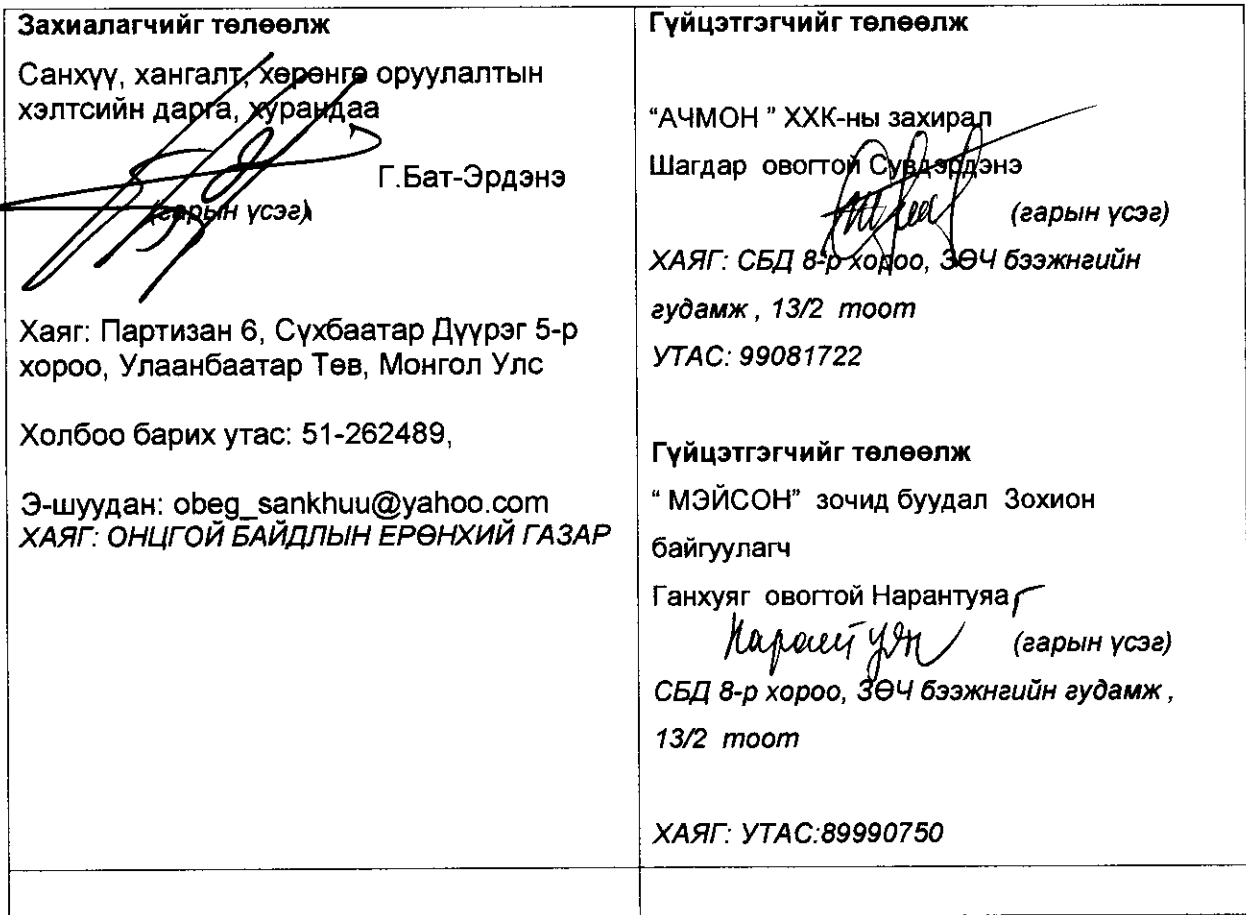 Захиалагчийг төлөөлж
Санхүү, хангалт, хөрөнгө оруулалтын
хэлтсийн дарга, хурандаа
Г.Бат-Эрдэнэ
(гарын үсэг)
Хаяг: Партизан 6, Сүхбаатар Дүүрэг 5-р
хороо, Улаанбаатар Төв, Монгол Улс
Холбоо барих утас: 51-262489,
Э-шуудан: obeg_sankhuu@yahoo.com
ХАЯГ: ОНЦГОЙ БАЙДЛЫН ЕРӨНХИЙ ГАЗАР
Гүйцэтгэгчийг төлөөлж
“АЧМОН ” ХХК-ны захирал
Шагдар овогтой Сувдэрдэнэ
(гарын үсэг)
ХАЯГ: СБД 8-р хороо, ЗӨЧ бээжнгийн
гудамж , 13/2 тоот
УТАС: 99081722
Гүйцэтгэгчийг төлөөлж
“ МЭЙСОН” зочид буудал Зохион
байгуулагч
Ганхуяг овогтой Нарантуяа
Нарантуяа
(гарын үсэг)
СБД 8-р хороо, ЗӨЧ бээжнгийн гудамж ,
13/2 тоот
ХАЯГ: УТАС:89990750